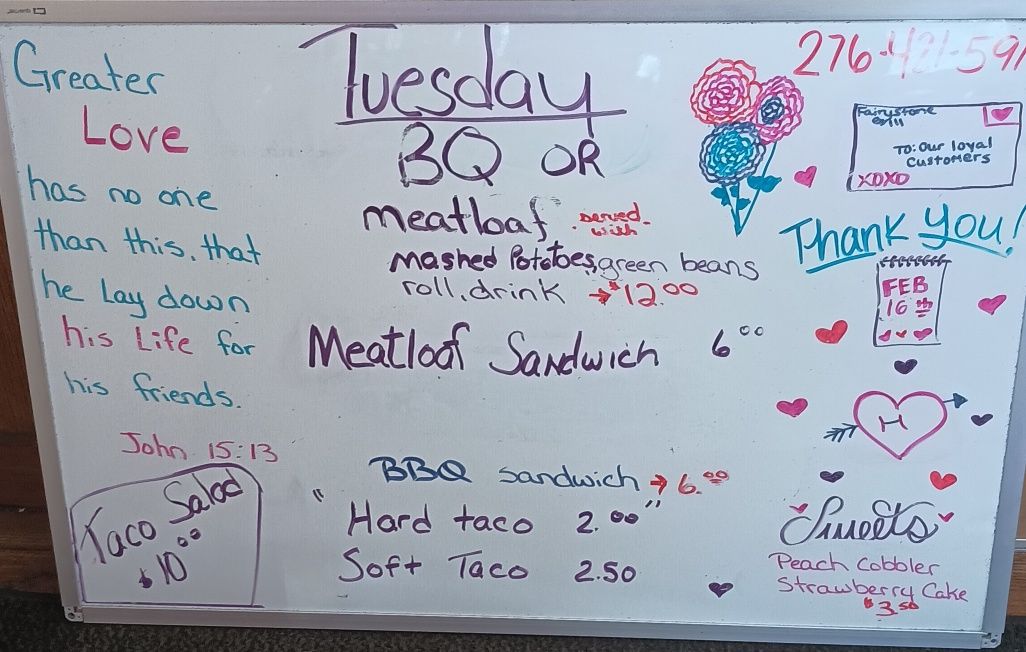 Greater
Love
has no one
than this, that
he Lay down
his Life for
his friends.
John 15:13
Taco Salad
$10.00
Tuesday
BQ OR
Meatloaf served
with
Mashed Pototoes, green beans
roll, drink → $12.00
Meatloaf Sandwich 6.00
BBQ sandwich → 6.00
" Hard taco 2.00 "
Soft Taco 2.50
276-421-59
Fairystone
TO: Our loyal
Customers
XOXO
Thank You!
FEB
16th
H
Sweets
Peach Cobbler
Strawberry Cake
$3.50